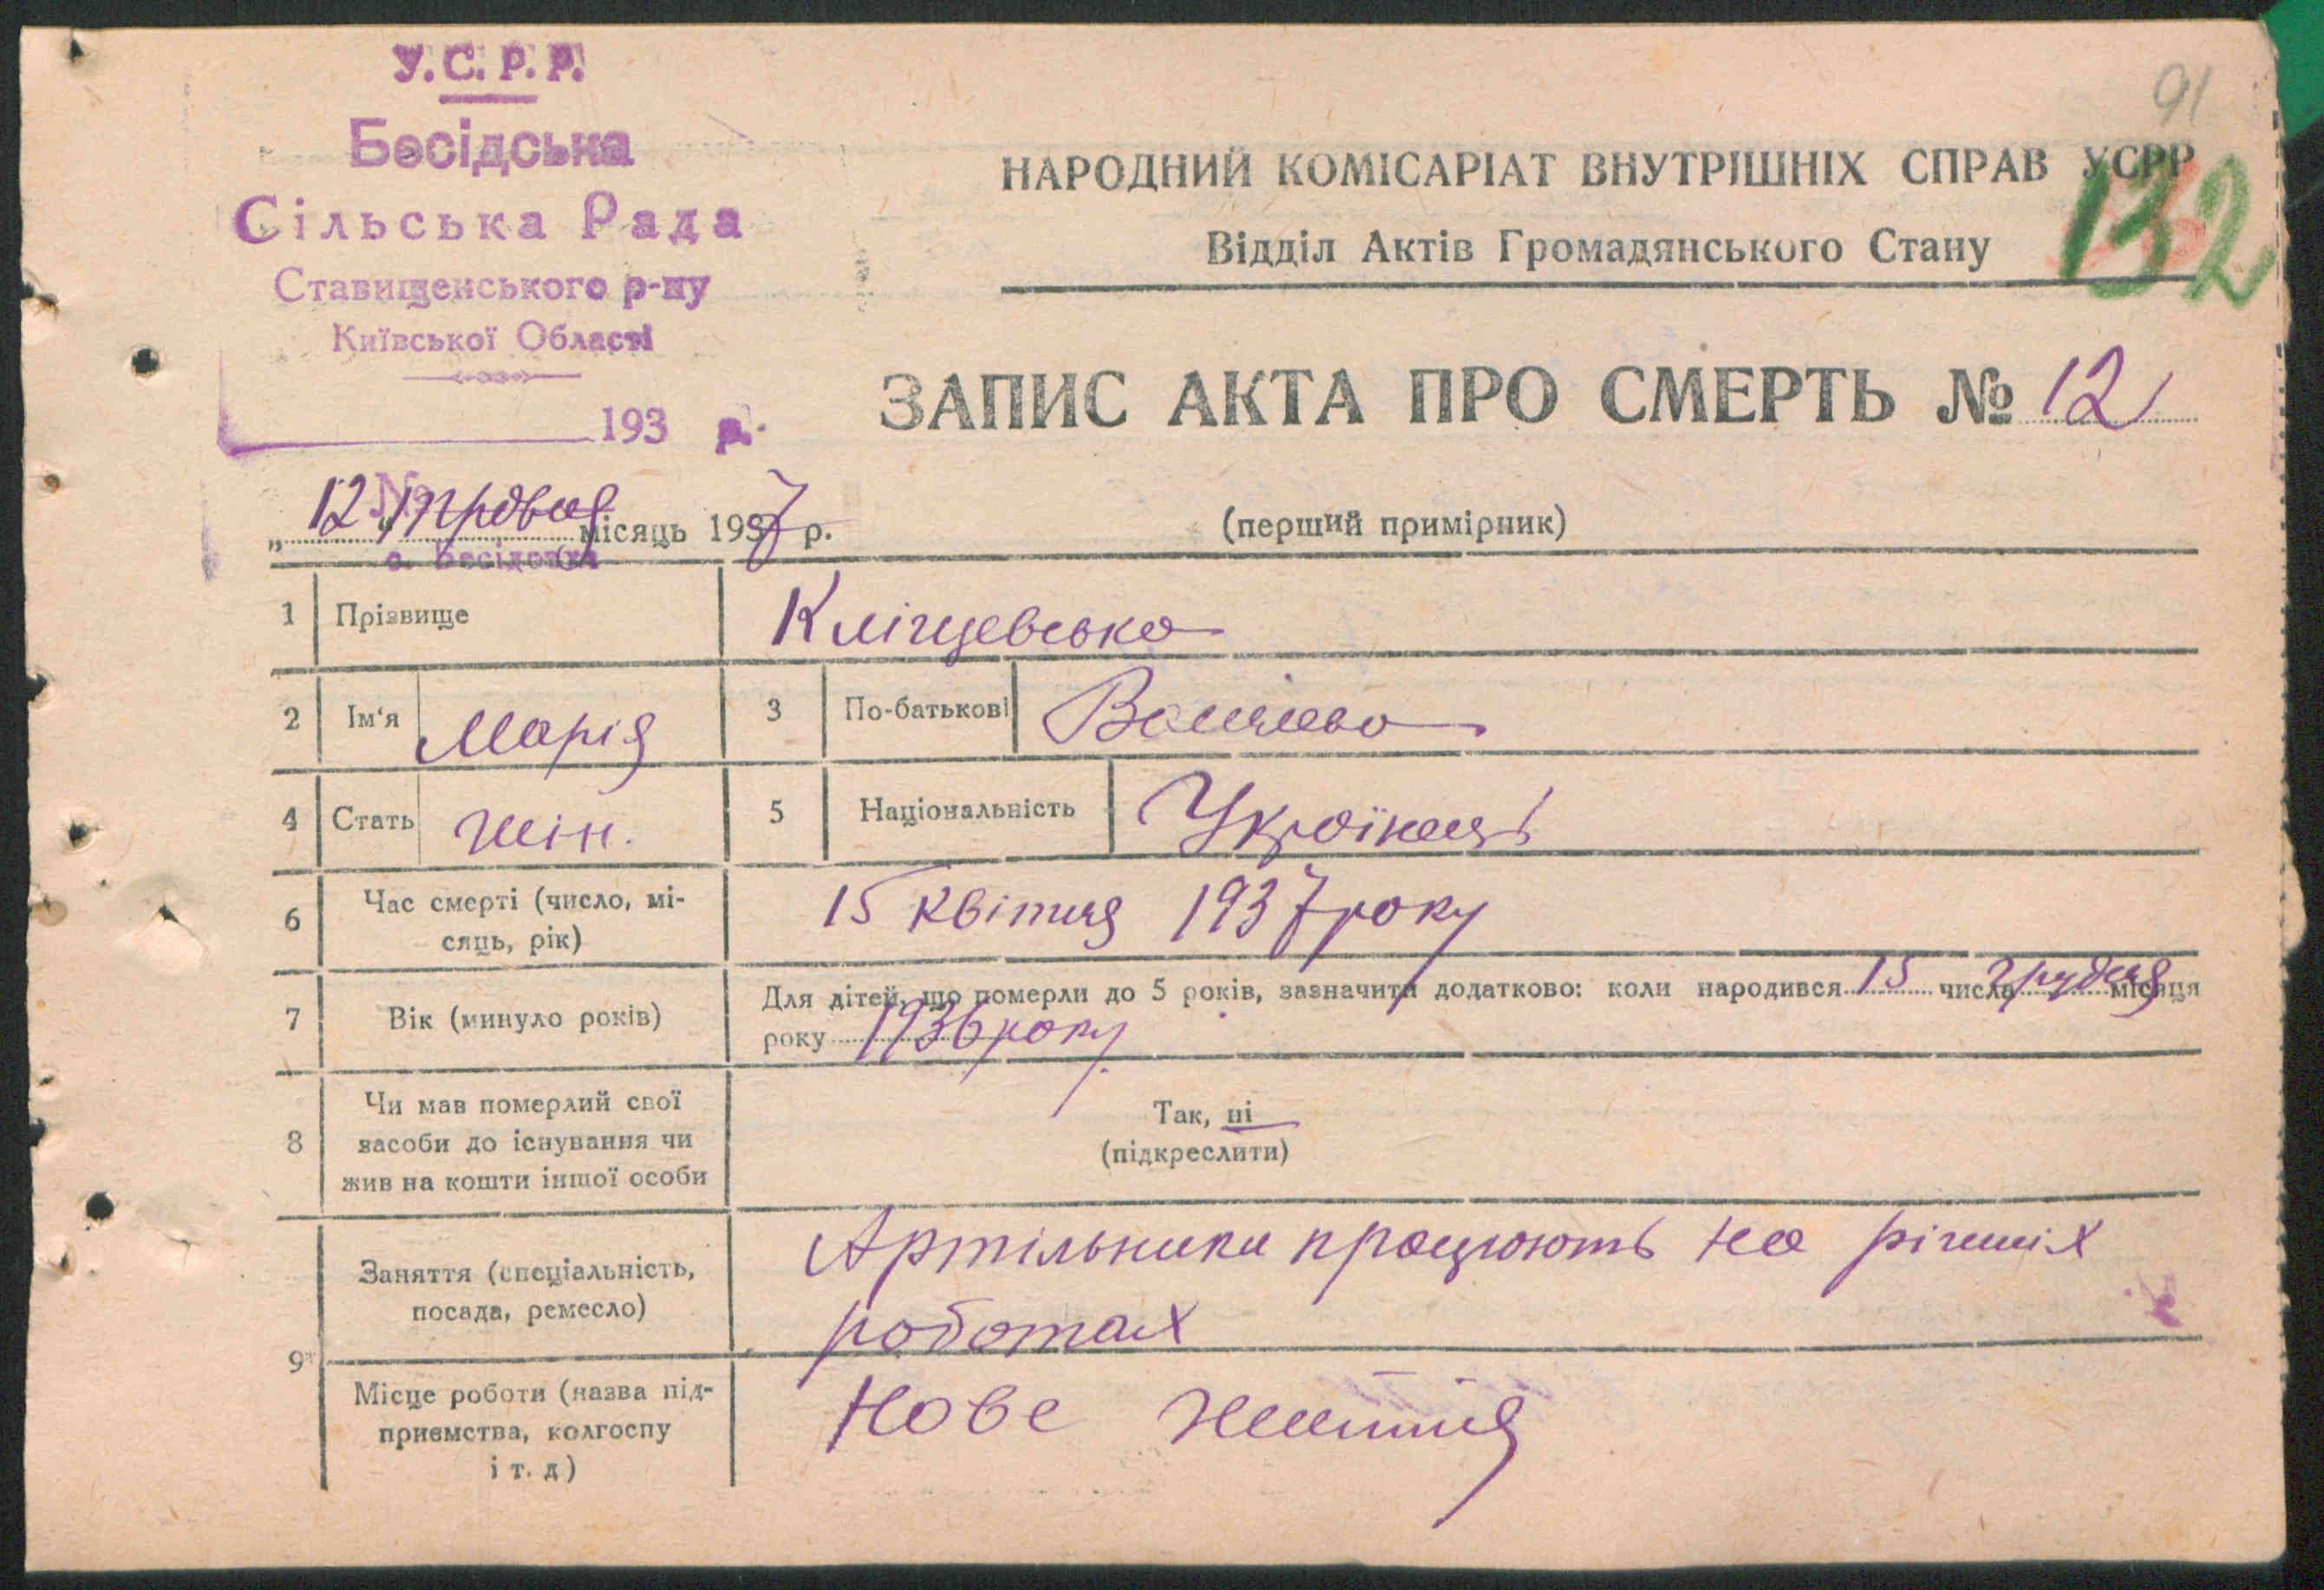 У.С.Р.Р.
Бесідська
Сільська Рада
Ставищенського р-ну
Київської Області
193 р.
№
с. Бесідка
91
132
НАРОДНИЙ КОМІСАРІАТ ВНУТРІШНІХ СПРАВ УСРР
Відділ Актів Громадянського Стану
ЗАПИС АКТА ПРО СМЕРТЬ № 12
„12" травня місяць 1937 р.
(перший примірник)
1 Прізвище Кліщевська
2 Ім'я Марія 3 По-батькові
4 Стать жін. 5 Національність Українець
6 Час смерті (число, мі-
сяць, рік) 15 квітня 1937 року
7 Вік (минуло років) Для дітей, що померли до 5 років, зазначити додатково: коли народився 15 числа грудня місяця
року 1936 року
8 Чи мав померлий свої
засоби до існування чи
жив на кошти іншої особи
Так, ні
(підкреслити)
9 Заняття (спеціальність,
посада, ремесло) Артільники працюють на різних
роботах
Місце роботи (назва під-
приємства, колгоспу
і т. д) Нове життя